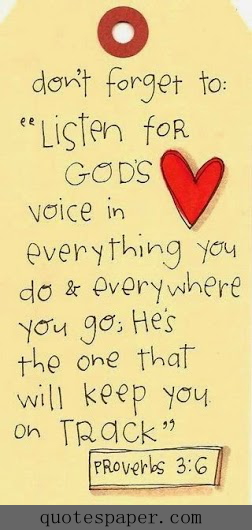 don't forget to:
"Listen foR
GOD'S
voice in
everything you
do & everywhere
you go; He's
the one that
will keep you
on TRack"
PRoverbs 3:6
quotespaper.com